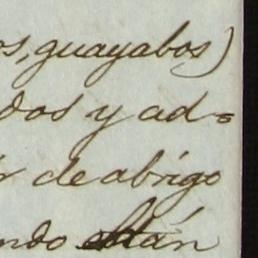 os, guayabos)
dos y ad=
r de abrigo
ndo están